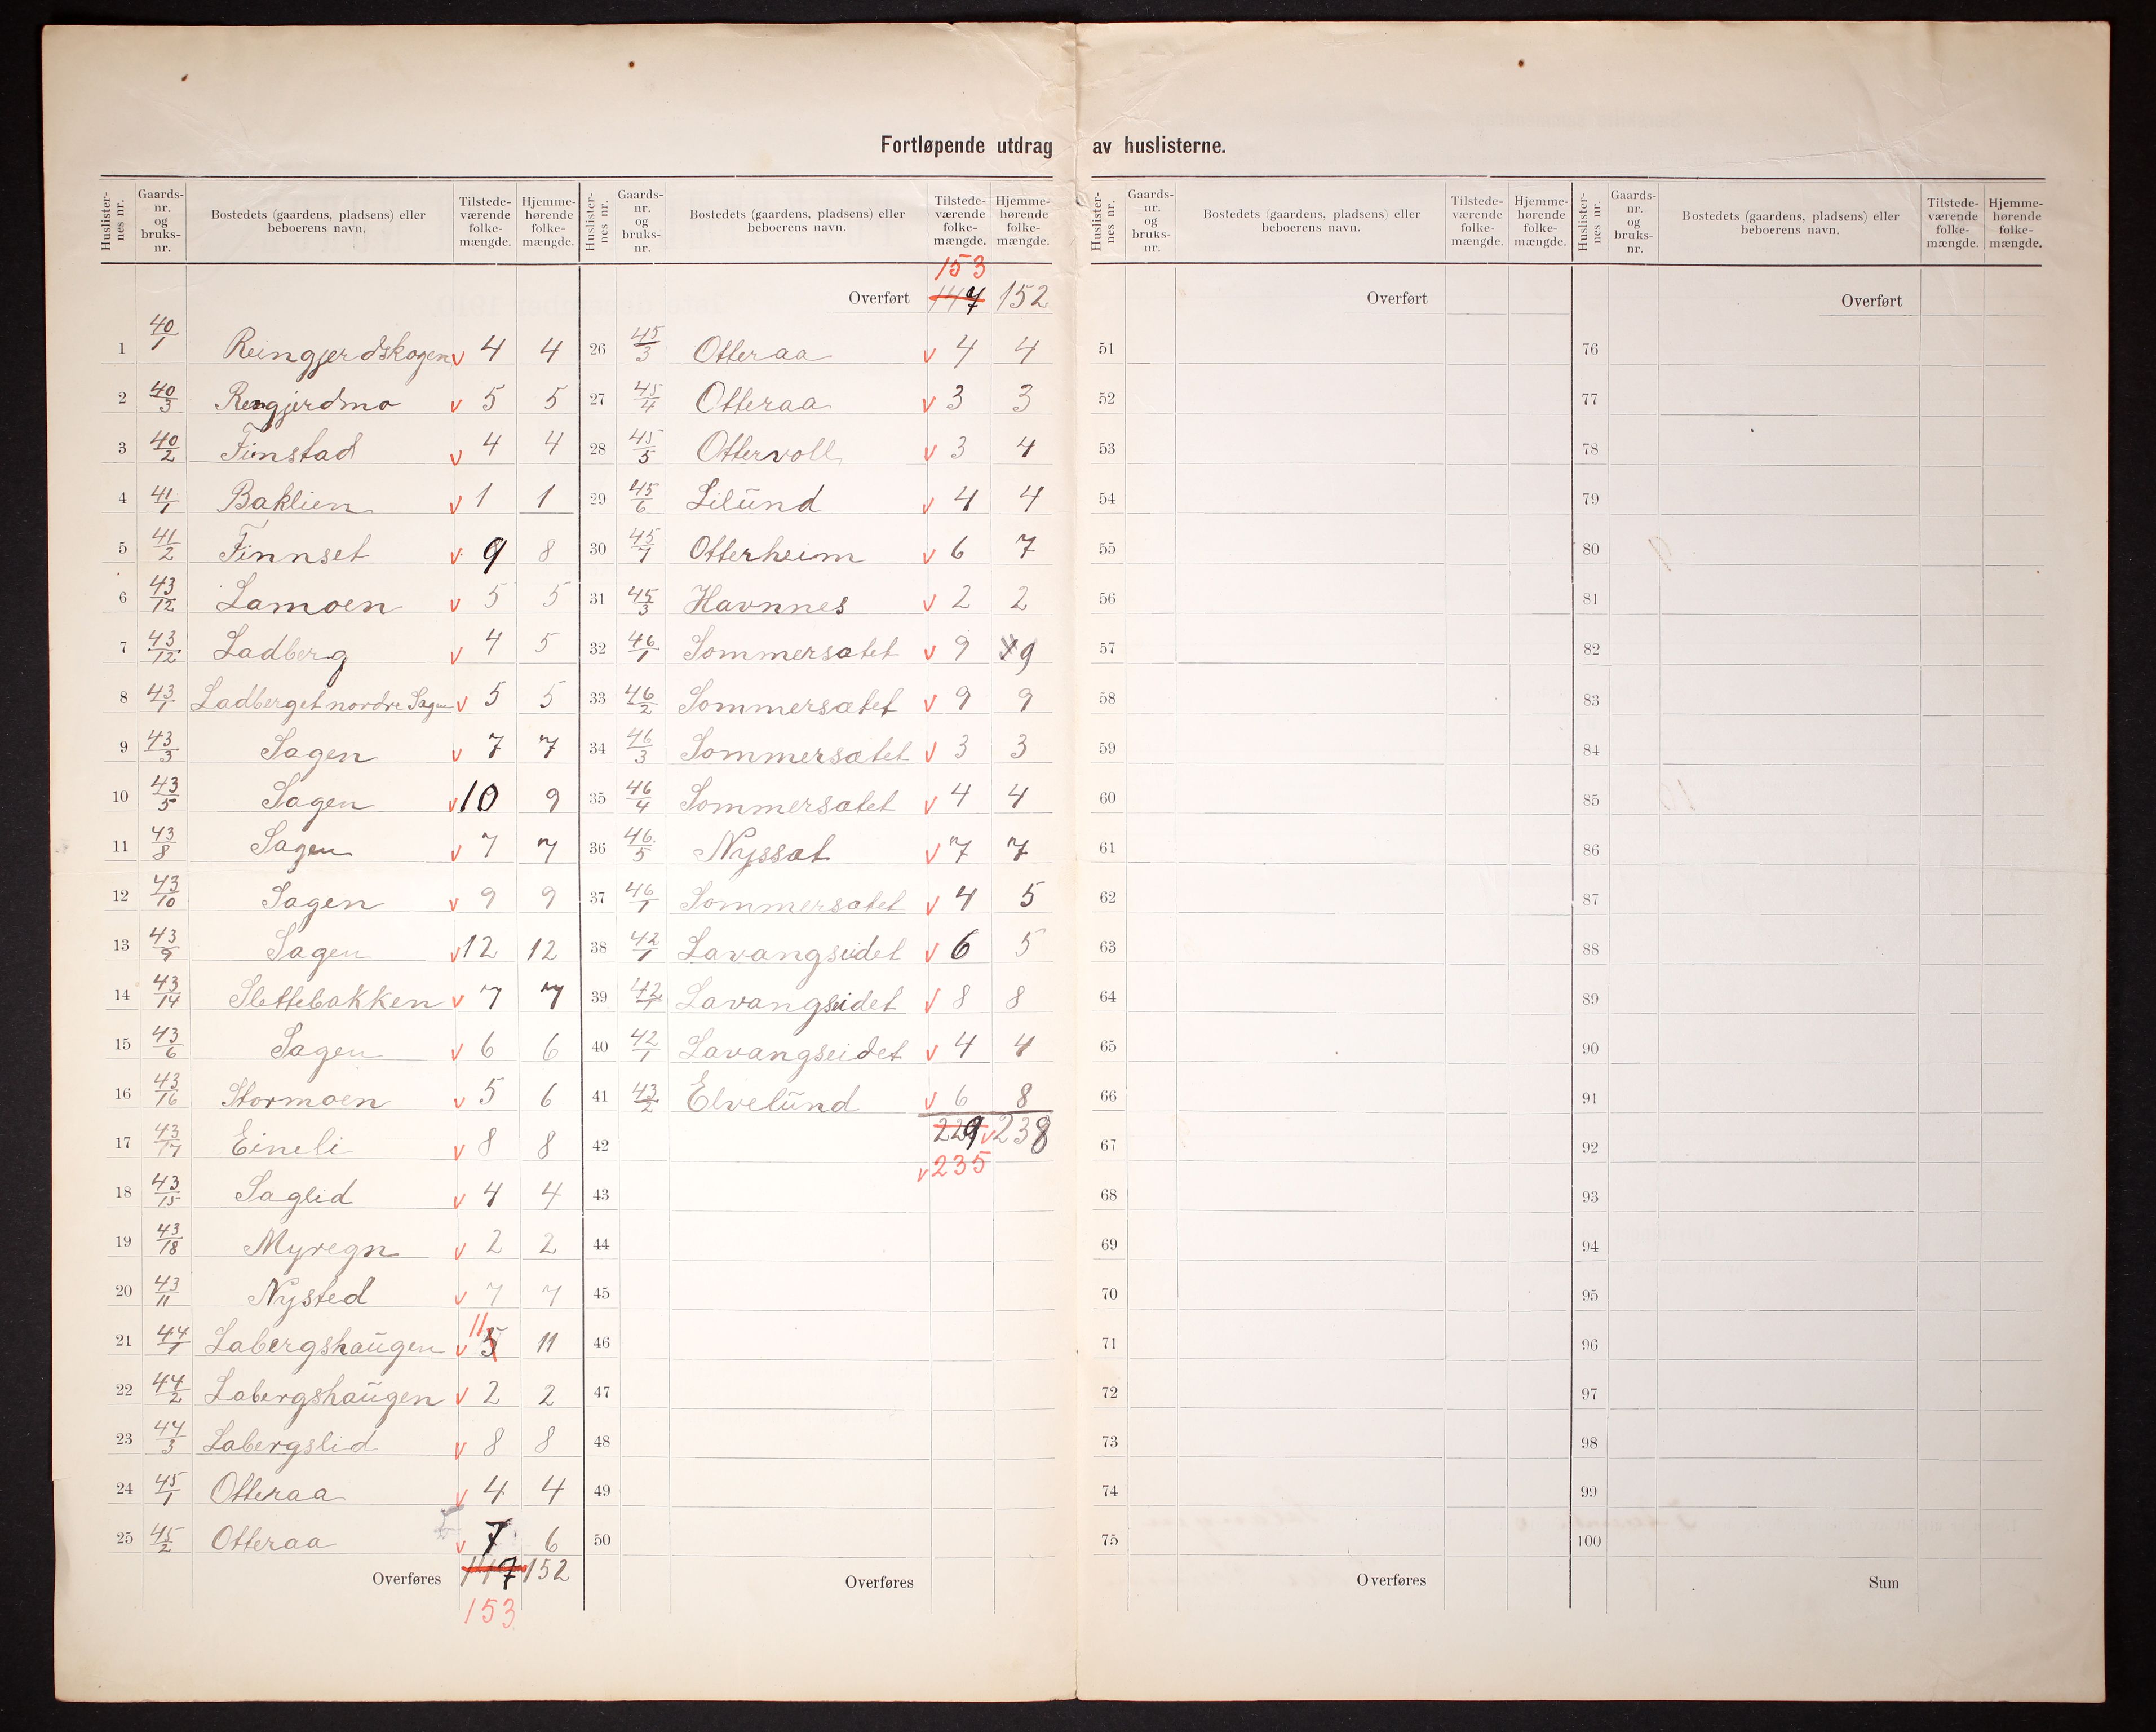 Fortløpende utdrag av huslisterne.
Huslisternes nr. Gaards-nr. og bruks-nr. Bostedets (gaardens, pladsens) eller beboerens navn. Tilstede-værende folke-mængde. Hjemme-hørende folke-mængde.
1 40/1 Reingjerdskogen v 4 4
2 40/3 Rengjerdmo v 5 5
3 40/2 Finstad v 4 4
4 41/1 Baklien v 1 1
5 41/2 Finnset v 9 8
6 43/12 Lamoen v 5 5
7 43/12 Ladberg v 4 5
8 43/1 Ladberget nordre Sagen v 5 5
9 43/3 Sagen v 7 7
10 43/5 Sagen v 10 9
11 43/8 Sagen v 7 7
12 43/10 Sagen v 9 9
13 43/9 Sagen v 12 12
14 43/14 Slettebakken v 7 7
15 43/6 Sagen v 6 6
16 43/16 Stormoen v 5 6
17 43/17 Eineli v 8 8
18 43/15 Saglid v 4 4
19 43/18 Myregn v 2 2
20 43/11 Nysted v 7 7
21 44/1 Labergshaugen v 5 11 11
22 44/2 Labergshaugen v 2 2
23 44/3 Labergslid v 8 8
24 45/1 Otteraa v 4 4
25 45/2 Otteraa v 7 6
Overføres 147 152
153
Huslisternes nr. Gaards-nr. og bruks-nr. Bostedets (gaardens, pladsens) eller beboerens navn. Tilstede-værende folke-mængde. Hjemme-hørende folke-mængde.
153
Overført 147 152
26 45/3 Otteraa v 4 4
27 45/4 Otteraa v 3 3
28 45/5 Ottervoll v 3 4
29 45/6 Lilund v 4 4
30 45/7 Otterheim v 6 7
31 45/3 Havnnes v 2 2
32 46/1 Sommersætet v 9 9
33 46/2 Sommersætet v 9 9
34 46/3 Sommersætet v 3 3
35 46/4 Sommersætet v 4 4
36 46/5 Nyssæt v 7 7
37 46/1 Sommersætet v 4 5
38 42/1 Lavangseidet v 6 5
39 42/1 Lavangseidet v 8 8
40 42/1 Lavangseidet v 4 4
41 43/2 Elvelund v 6 8
42 229 v 238
v 235
43
44
45
46
47
48
49
50
Overføres
Huslisternes nr. Gaards-nr. og bruks-nr. Bostedets (gaardens, pladsens) eller beboerens navn. Tilstede-værende folke-mængde. Hjemme-hørende folke-mængde.
Overført
51
52
53
54
55
56
57
58
59
60
61
62
63
64
65
66
67
68
69
70
71
72
73
74
75
Overføres
Huslisternes nr. Gaards-nr. og bruks-nr. Bostedets (gaardens, pladsens) eller beboerens navn. Tilstede-værende folke-mængde. Hjemme-hørende folke-mængde.
Overført
76
77
78
79
80
81
82
83
84
85
86
87
88
89
90
91
92
93
94
95
96
97
98
99
100
Sum